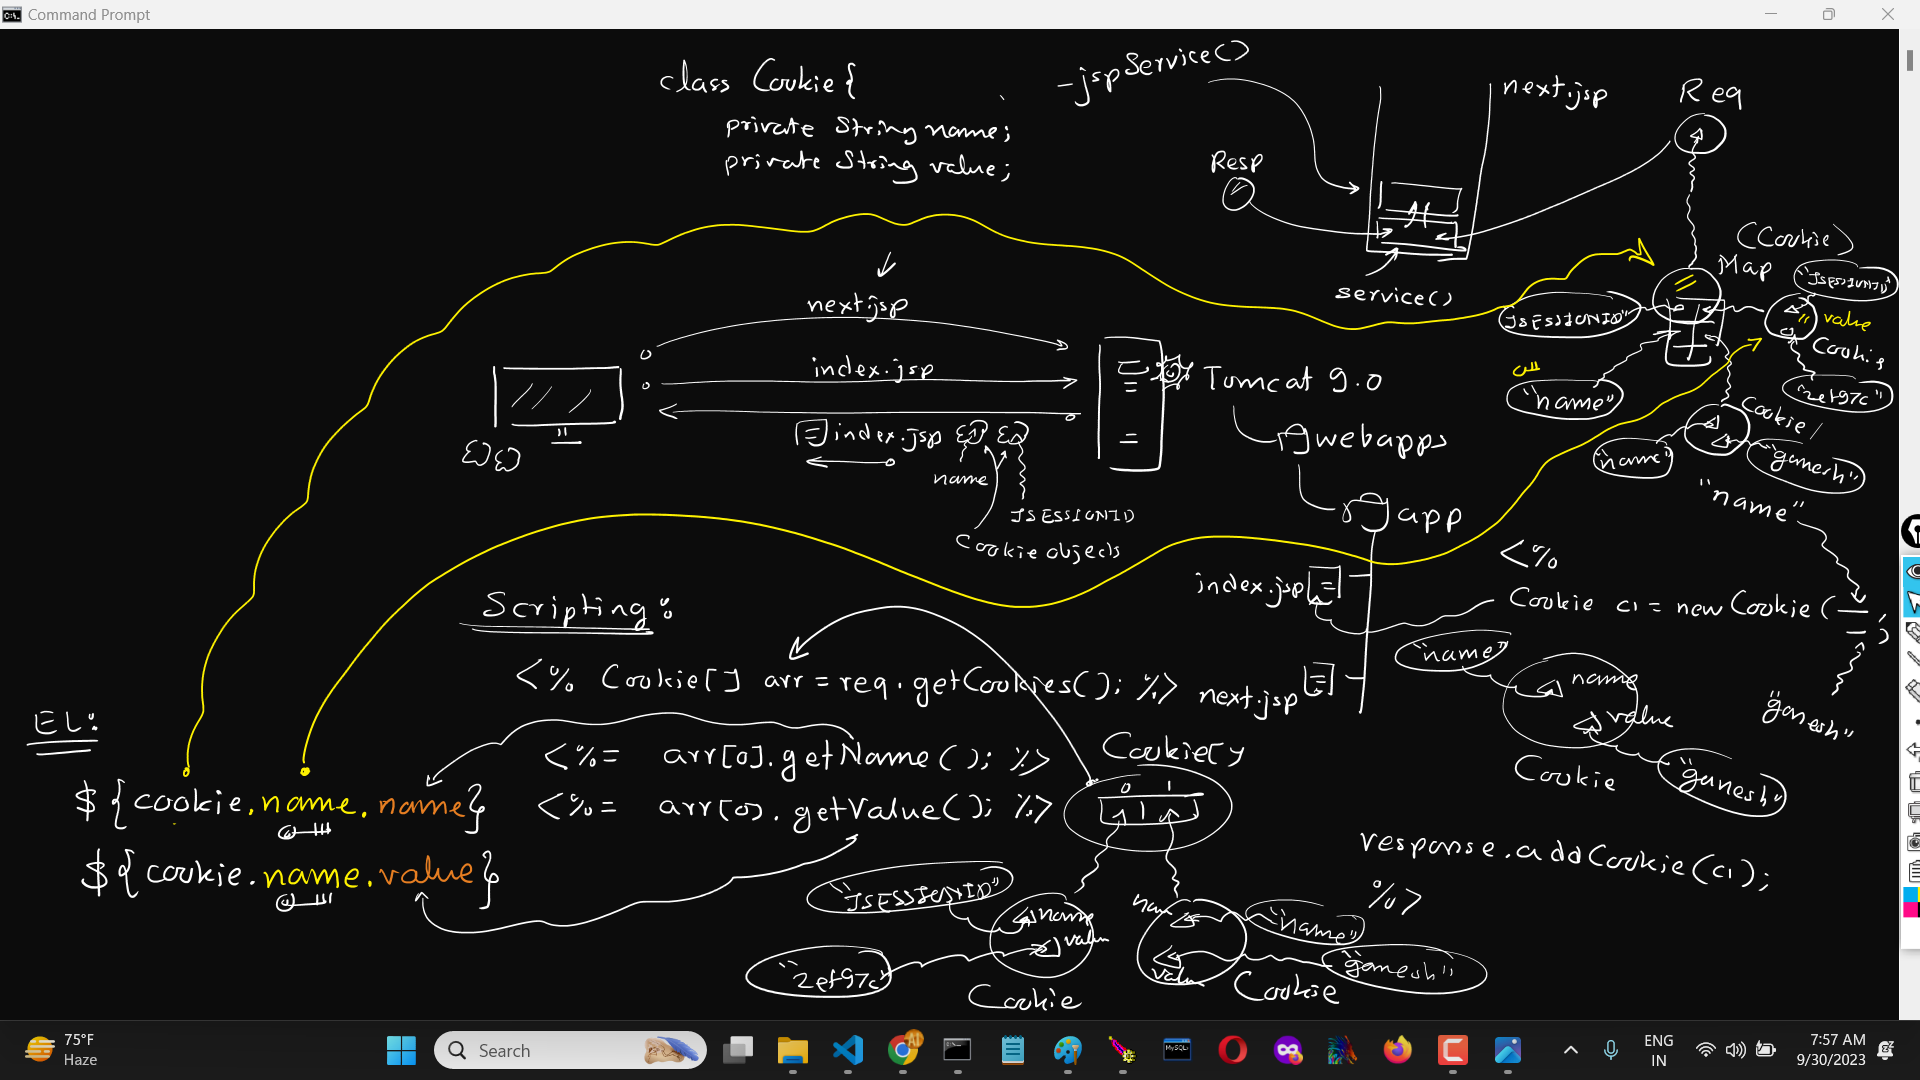 Command Prompt
class Cookie{
private String name;
private String value;
-jspService()
next.jsp
Req
Resp
service()
(Cookie)
Map
"JSESSIONID"
"JSESSIONID"
value
Cookie
"2ef97c"
"name"
Cookie
"name"
"ganesh"
next.jsp
index.jsp
index.jsp
name
JSESSIONID
Cookie objects
Tomcat 9.0
webapps
app
index.jsp
next.jsp
"name"
<%
Cookie c1 = new Cookie(
);
"ganesh"
"name"
name
value
Cookie
"ganesh"
response.addCookie(c1);
%>
Scripting:
<% Cookie[] arr = req.getCookies(); %>
<%= arr[0].getName(); %>
<%= arr[0].getValue(); %>
Cookie[]
0 1
EL:
${cookie.name.name}
${cookie.name.value}
"JSESSIONID"
name
value
"2ef97c"
Cookie
value
"name"
"ganesh"
Cookie
75°F
Haze
Search
ENG
IN
7:57 AM
9/30/2023